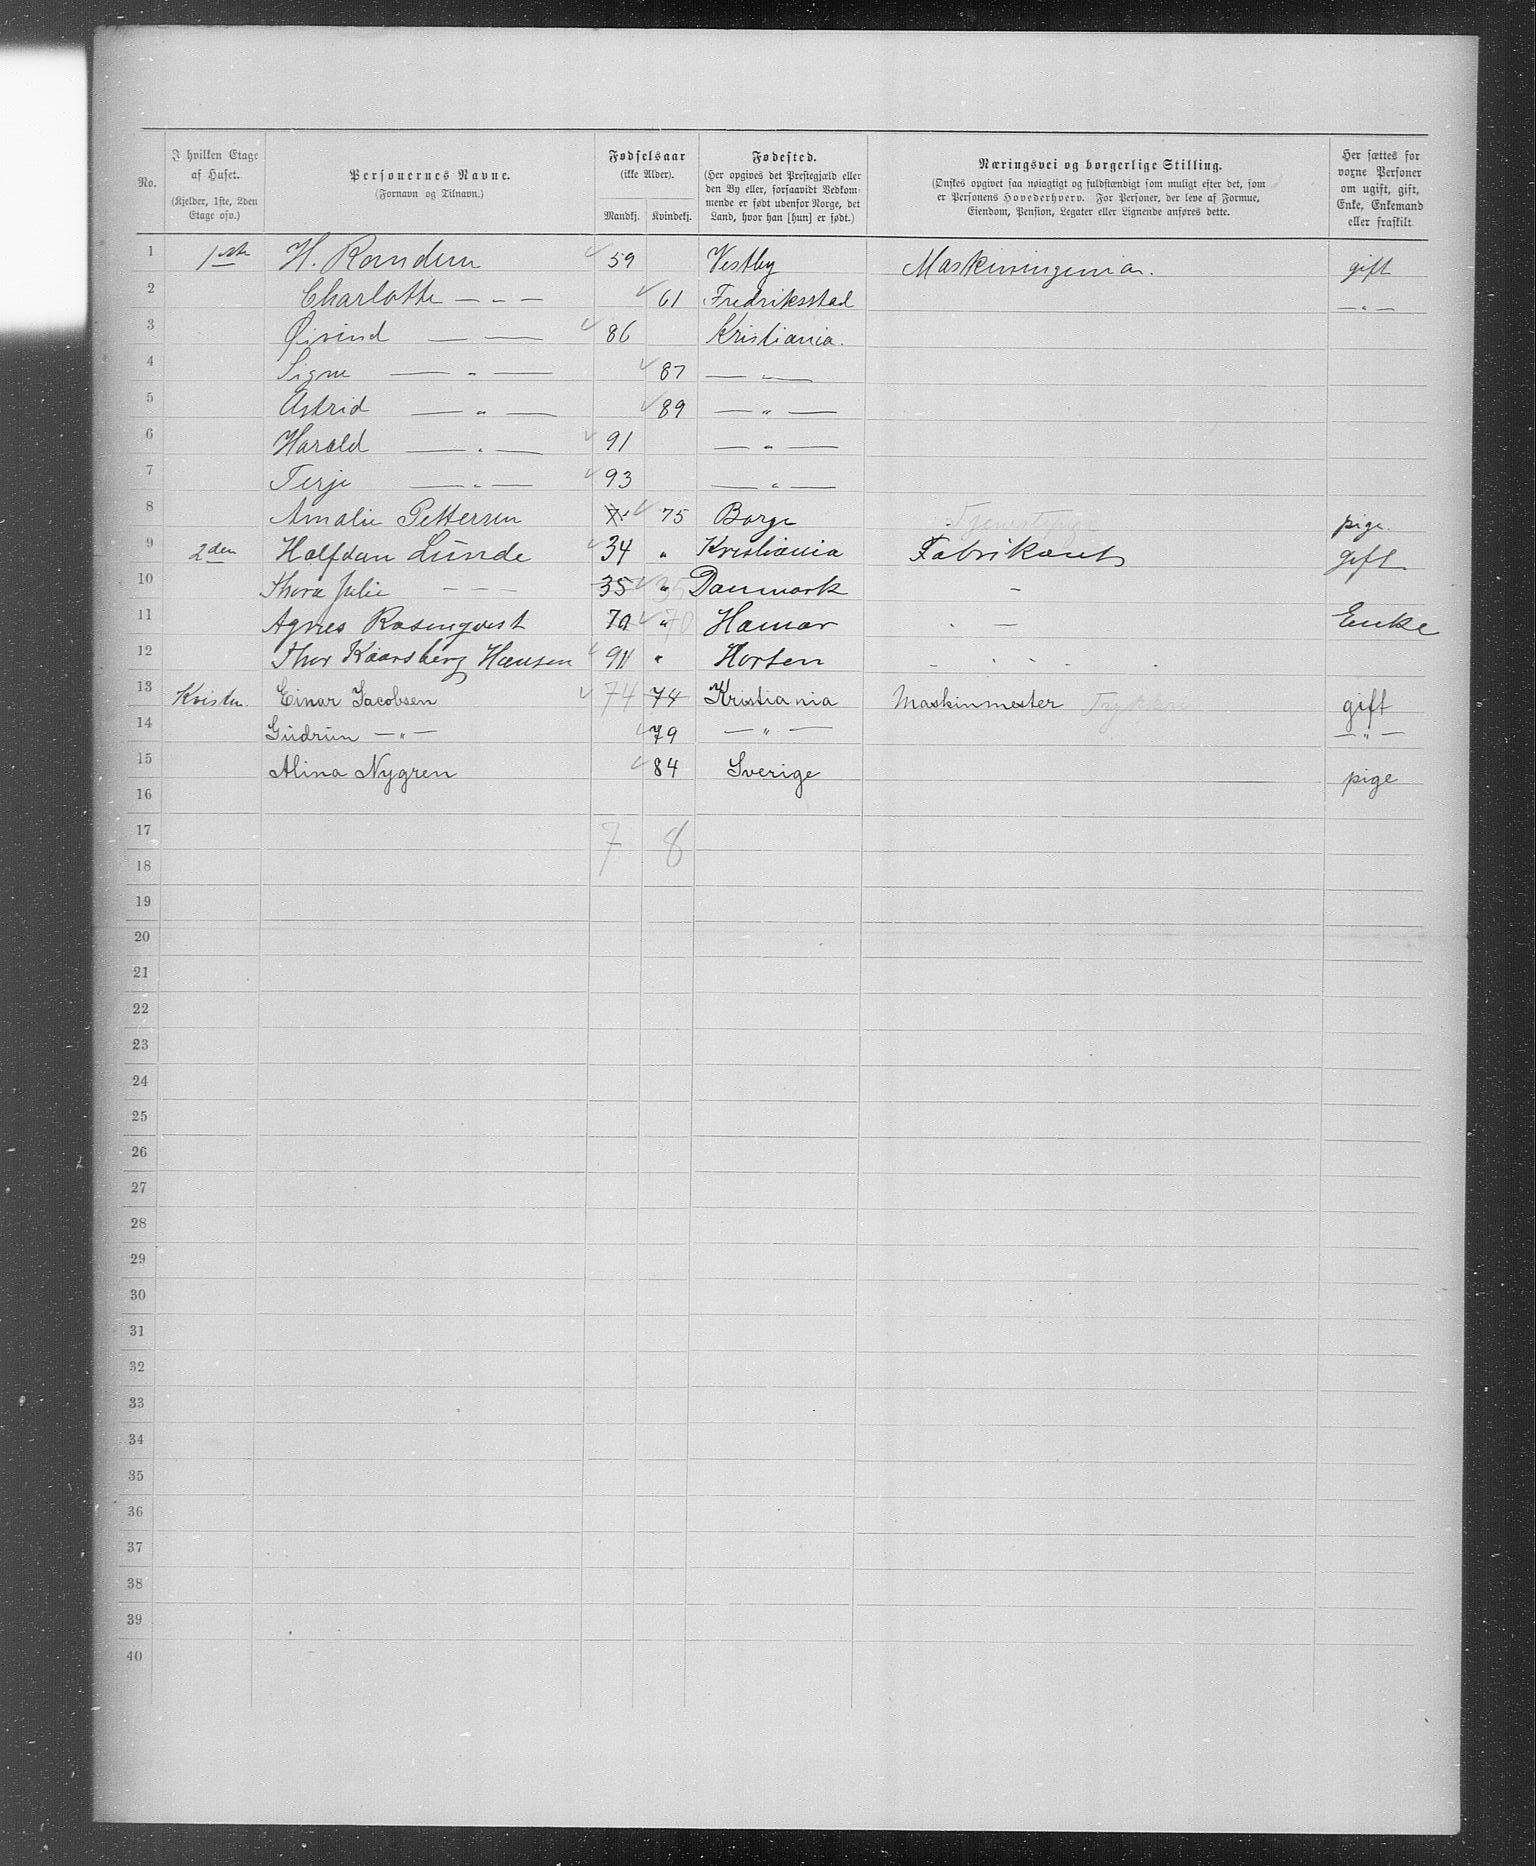 No.	I hvilken Etage af Huset. (Kjelder, 1ste, 2den Etage osv.)	Personernes Navne. (Fornavn og Tilnavn.)	Fødselsaar (ikke Alder). Mandkj. Kvindekj.	Fødested. (Her opgives det Prestegjæld eller den By eller, forsaavidt Vedkommende er født udenfor Norge, det Land, hvor han [hun] er født.)	Næringsvei og borgerlige Stilling. (Ønskes opgivet saa nøiagtigt og fuldstændigt som muligt efter det, som er Personens Hovederhverv. For Personer, der leve af Formue, Eiendom, Pension, Legater eller Lignende anføres dette.	Her sættes for voxne Personer om ugift, gift, Enke, Enkemand eller fraskilt.
1 1ste H. Ramdun 59 Vestby Maskiningeniør. gift
2 Charlotte — „ — 61 Fredriksstad — „ —
3 Øivind — — 86 Kristiania.
4 Signe — „ — 87 — „ —
5 Astrid — „ — 89 — „ —
6 Harald — „ — 91 — „ —
7 Terje — „ — 93 — „ —
8 Amalie Pettersen 75 Borge Tjenestepige pige.
9 2den Halfdan Lunde 34 „ Kristiania Fabrikant gift
10 Thora Julie — — — 35 „ 35 Danmark —
11 Agnes Rosenqvist 70 „ 70 Hamar . — Enke
12 Thor Kaarsberg Hansen 91 „ Horten
13 Kvisten Einar Jacobsen 74 74 Kristiania Maskinmester Trykkeri gift
14 Gudrun — „ — 79 — „ — — „ —
15 Alina Nygren 84 Sverige pige
16
17 7 8
18
19
20
21
22
23
24
25
26
27
28
29
30
31
32
33
34
35
36
37
38
39
40